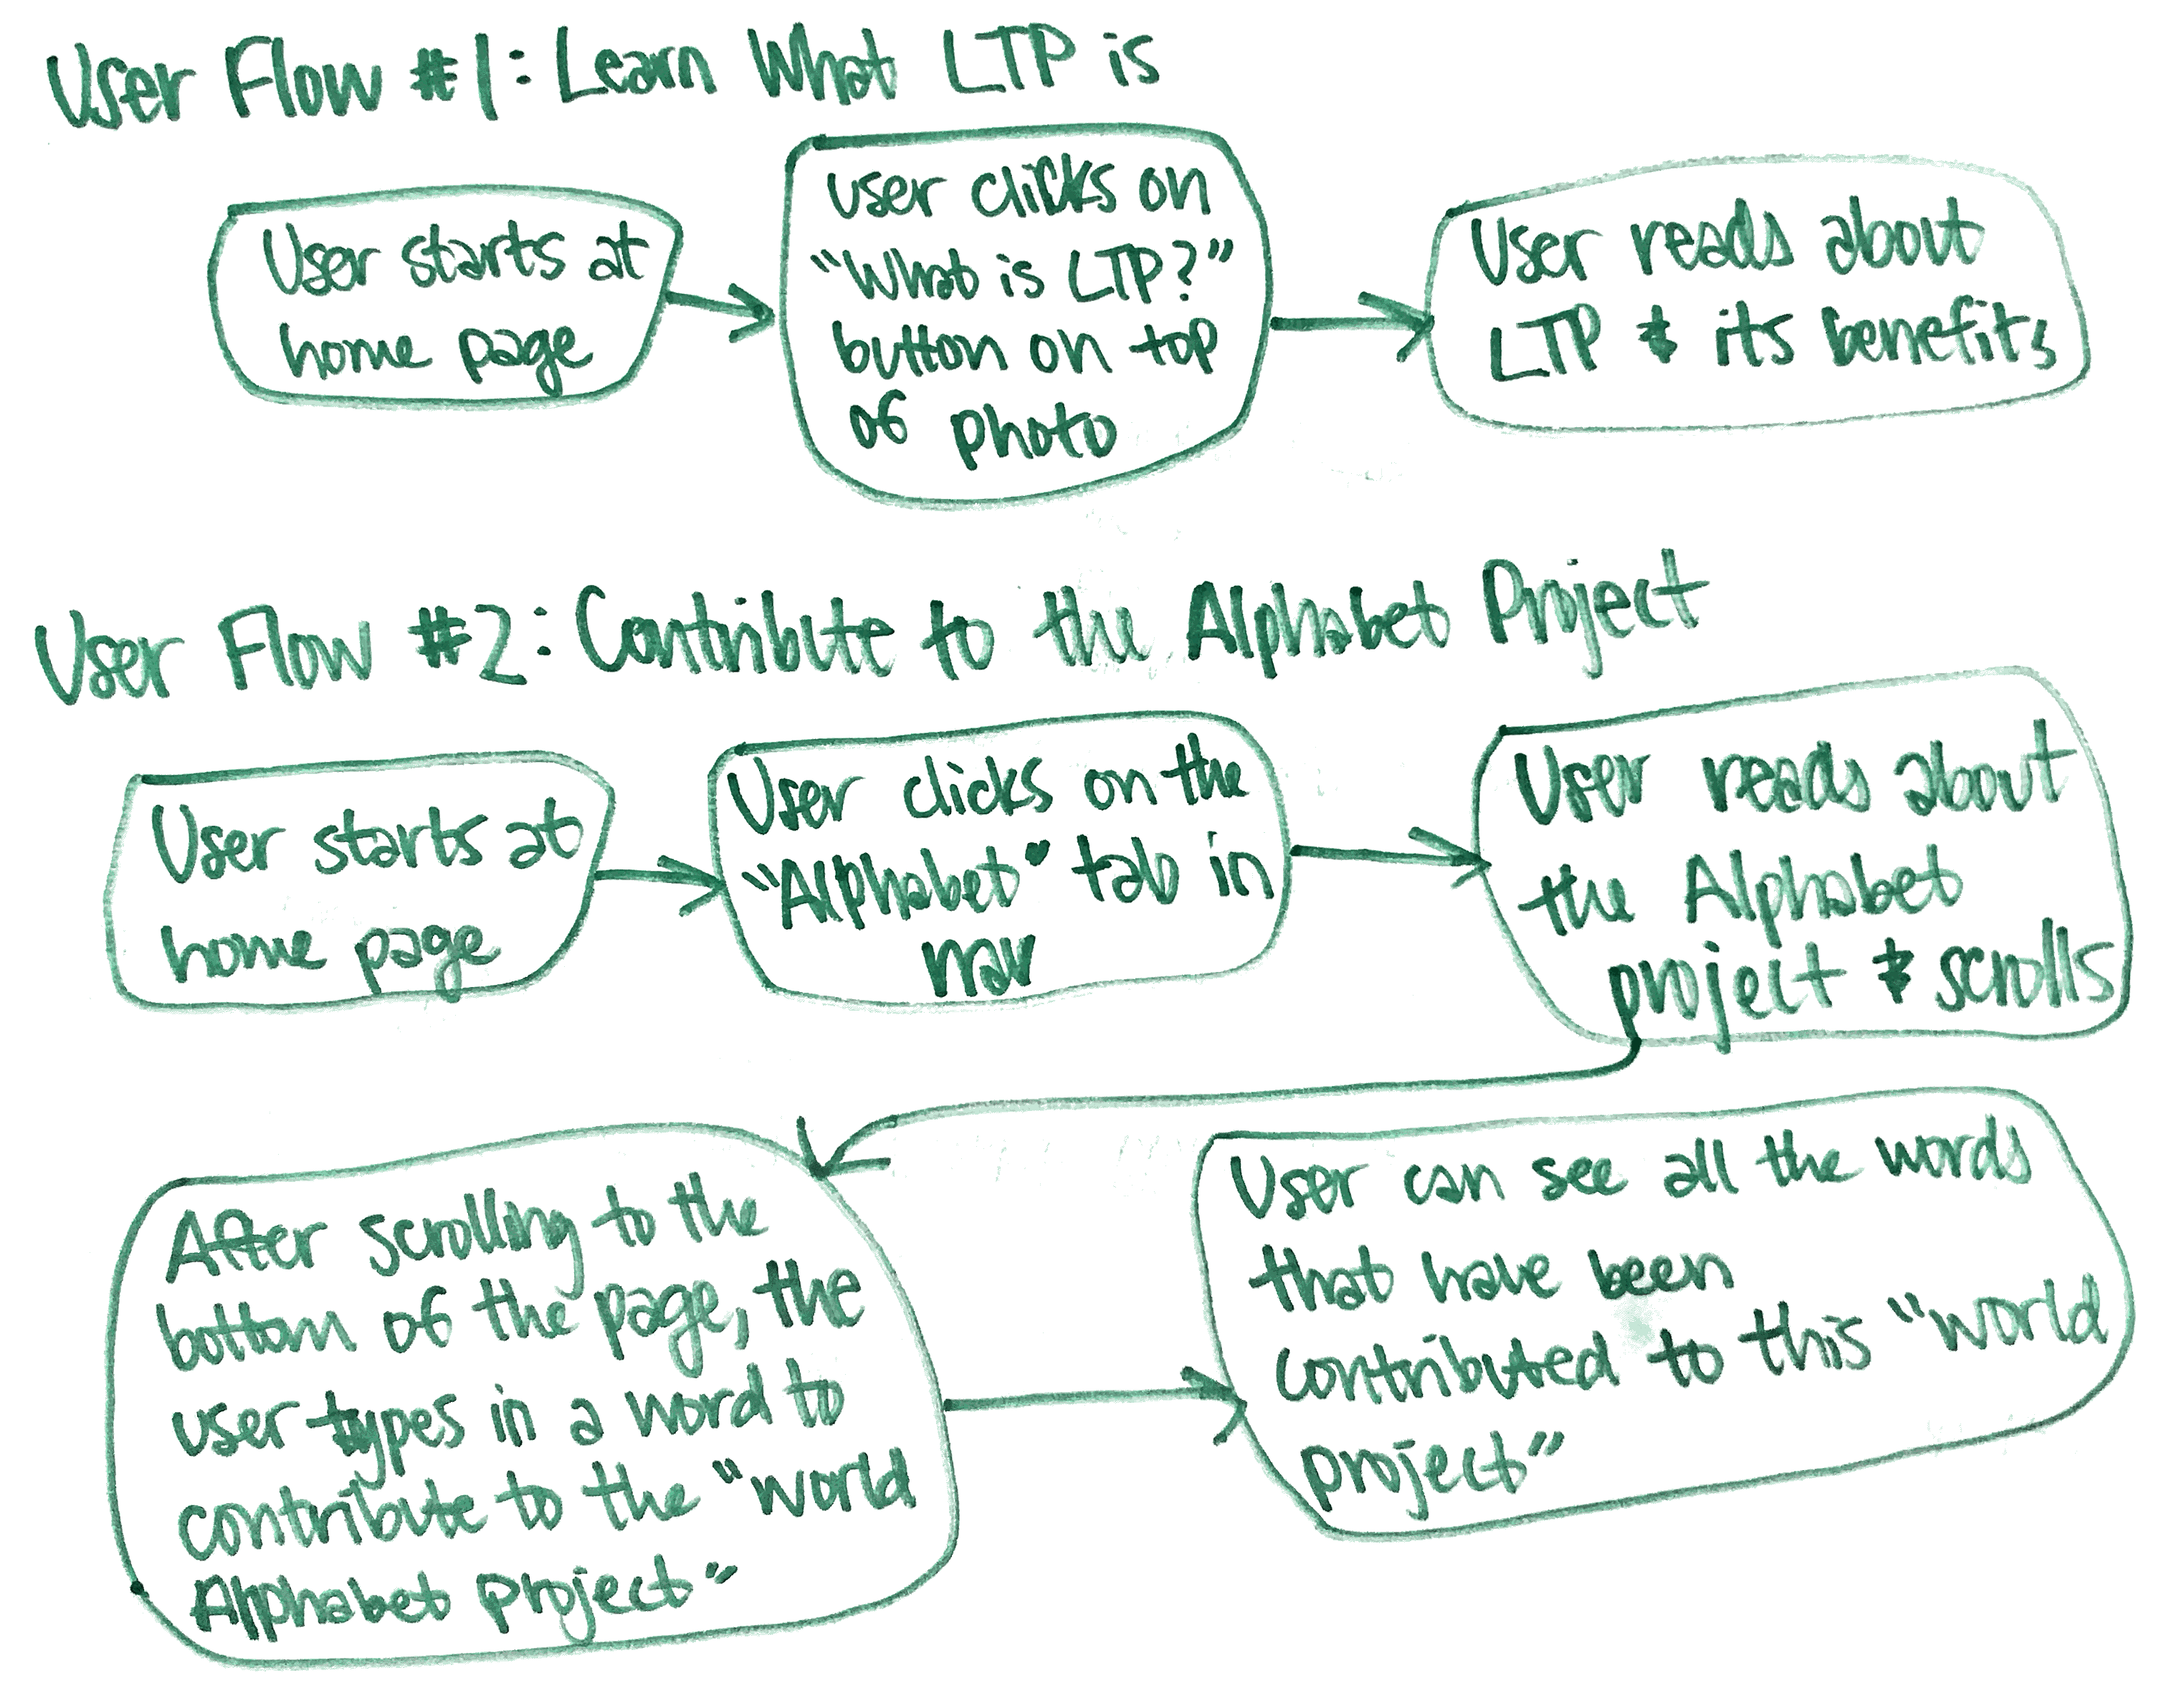 User Flow #1: Learn What LTP is
User starts at
home page
user clicks on
"What is LTP?"
button on top
of photo
User reads about
LTP & its benefits
User Flow #2: Contribute to the Alphabet Project
User starts at
home page
User clicks on the
"Alphabet" tab in
nav
User reads about
the Alphabet
project & scrolls
After scrolling to the
bottom of the page, the
user types in a word to
contribute to the "world
Alphabet project"
User can see all the words
that have been
contributed to this "world
project"